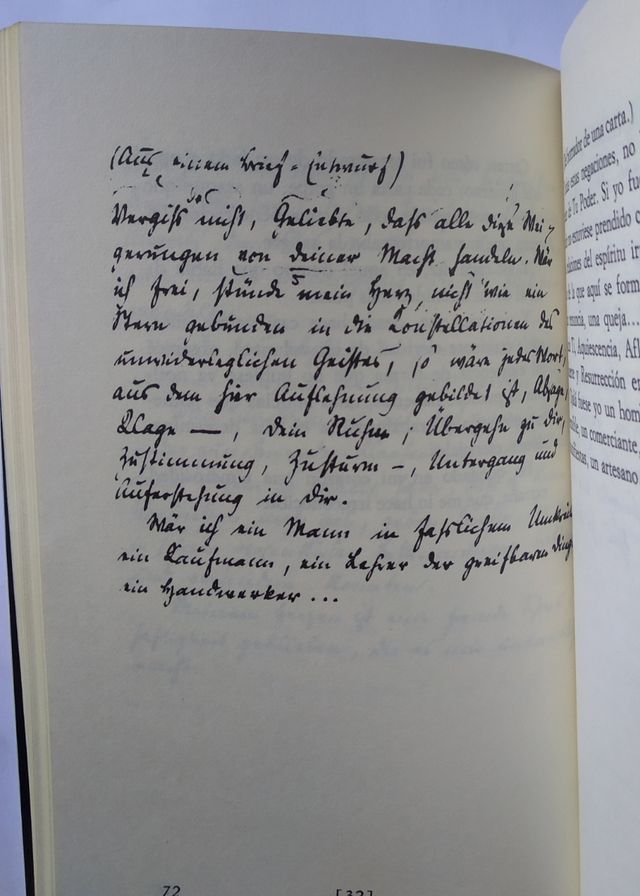 (Aus einem Brief-Entwurf)
Vergiss nicht, Geliebte, dass alle diese Wei-
gerungen von deiner Macht handeln. Wär
ich frei, stünde mein Herz nicht wie ein
Stern gebunden in die Constellationen des
unwiderleglichen Geistes, so wäre jedes Wort,
aus dem hier Auflehnung gebildet ist,
Klage —, dein Ruhm; Übergehn zu dir,
Zustimmung, Zusturm —, Untergang und
Auferstehung in dir.
Wär ich ein Mann in fasslichem Umkreis
ein Kaufmann, ein Lehrer der greifbaren Dinge
ein Handwerker...
72
[32]
borrador de una carta.)
estas negaciones, no
de Tu Poder. Si yo fu
estuviese prendido c
ciones del espíritu ir
a que aquí se forma
nuncia, una queja...
Aquiescencia, Afl
y Resurrección e
fuese yo un hom
un comerciante,
un artesano